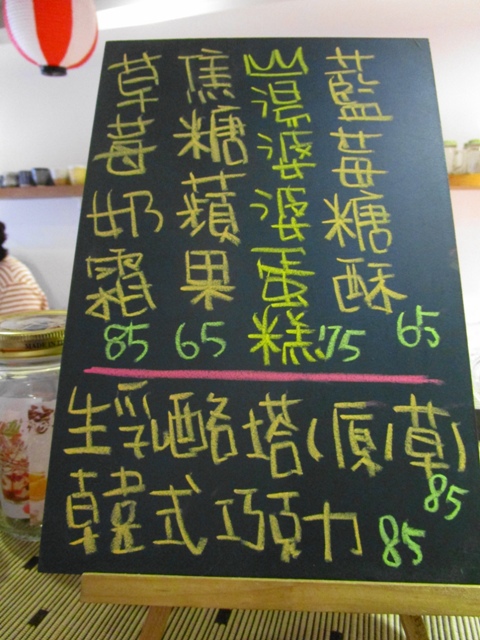 藍莓糖酥 65
湯婆婆蛋糕 75
焦糖蘋果 65
草莓奶霜 85
生乳酪塔(原/草) 85
韓式巧克力 85